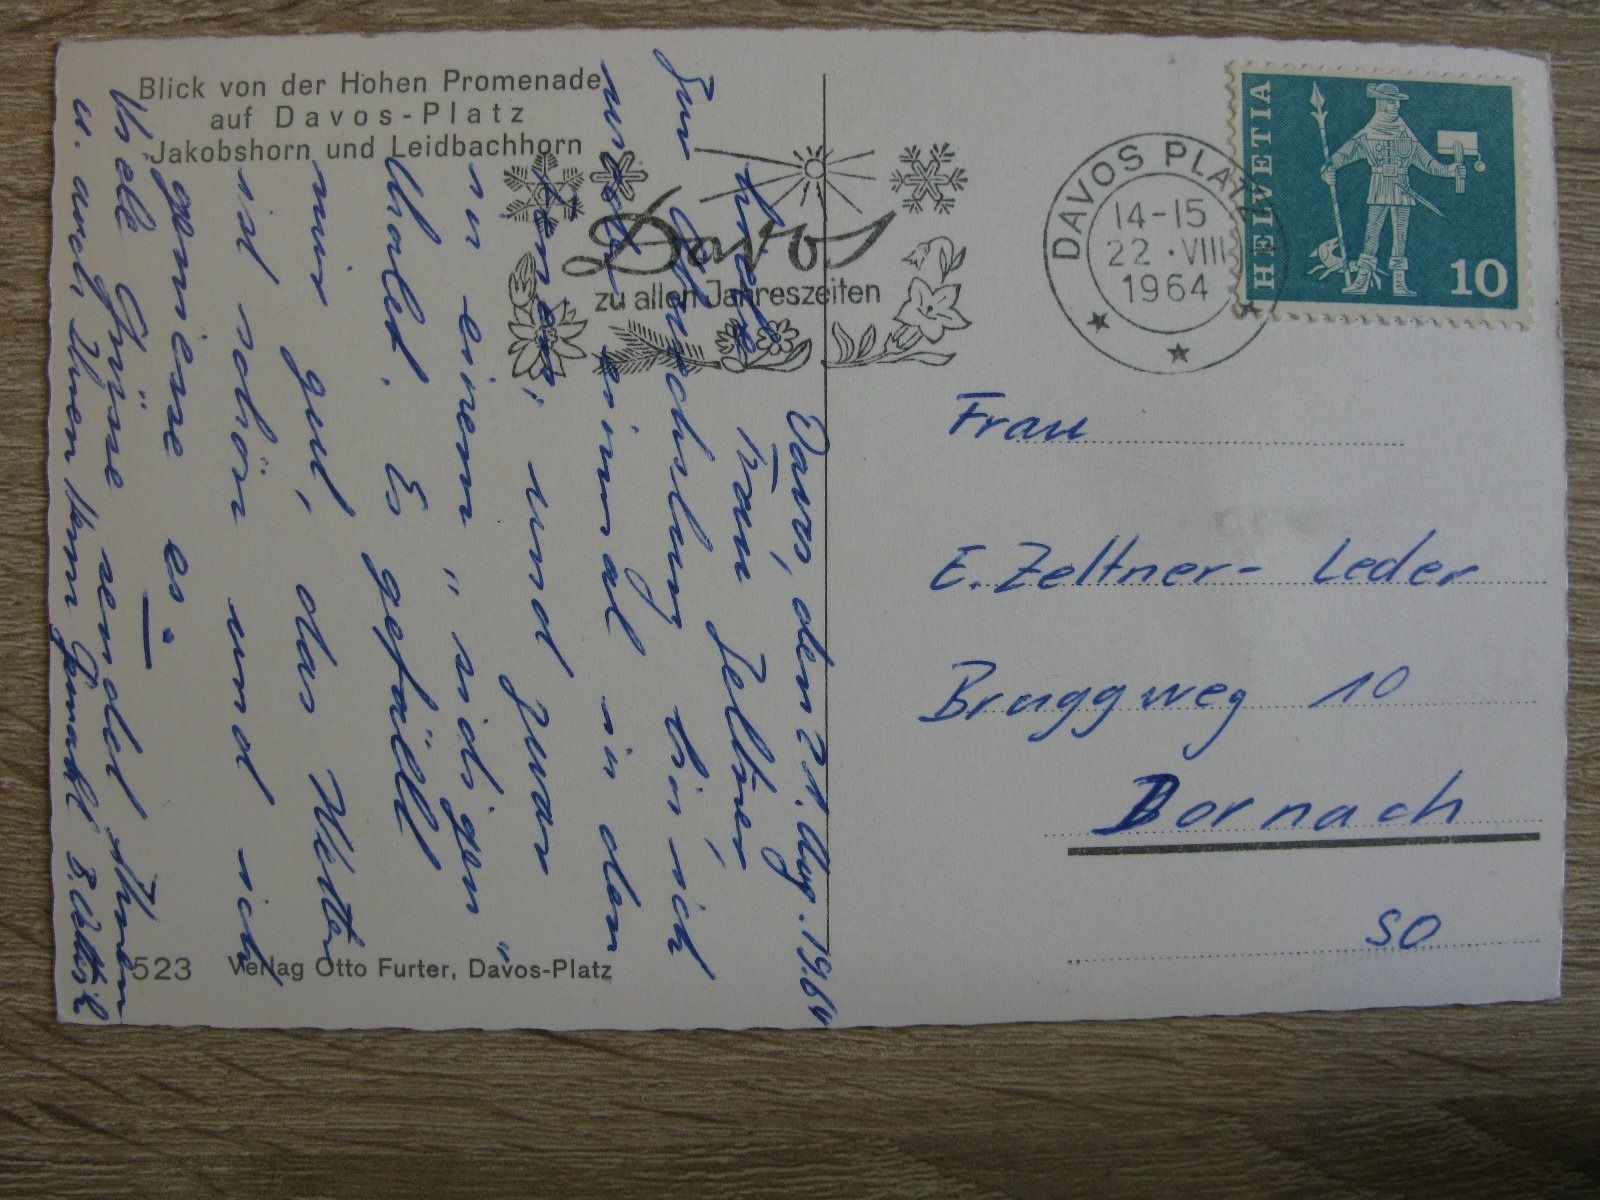 Blick von der Hohen Promenade
auf Davos-Platz
Jakobshorn und Leidbachhorn
Davos
zu allen Jahreszeiten
DAVOS PLATZ
14-15
22.VIII
1964
HELVETIA
10
Davos, den 21. Aug. 1964
Liebe Frau Zeltner,
Zur Abwechslung bin ich
wieder einmal in den
Ferien, und zwar
in einem "ridigen"
Chalet. Es gefällt
mir gut, das Wetter
ist schön und ich
geniesse es.
Viele Grüsse sendet Ihnen
u. auch Ihrem Herrn Gemahl B.
Frau
E. Zeltner-Leder
Bruggweg 10
Dornach
SO
523 Verlag Otto Furter, Davos-Platz